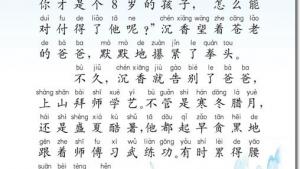 你才是个8岁的孩子，怎么能
duì fu de liǎo tā ne chén xiāng wàng zhe cāng lǎo
对付得了他呢？”沉香望着苍老
de bà ba mò mò de zuàn jǐn le quán tou
的爸爸，默默地攥紧了拳头。
bù jiǔ chén xiāng jiù gào bié le bà ba
不久，沉香就告别了爸爸，
shàng shān bài shī xué yì bù guǎn shì hán dōng là yuè
上山拜师学艺。不管是寒冬腊月，
hái shì shèng xià kù shǔ tā dōu qǐ zǎo tān hēi de
还是盛夏酷暑，他都起早贪黑地
gēn zhe shī fu xí wǔ liàn gōng yǒu shí lèi de yāo
跟着师傅习武练功。有时累得腰
suān bèi téng